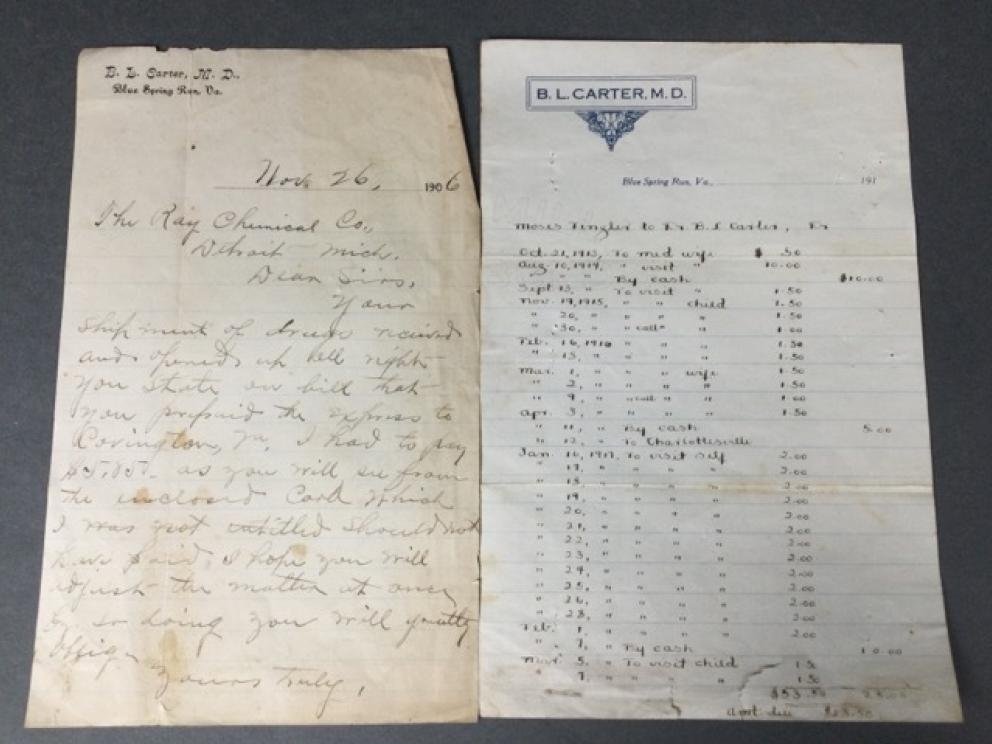 B. L. Carter, M. D.,
Blue Spring Run, Va.
Nov. 26, 1906
The Ray Chemical Co.,
Detroit Mich.
Dear Sirs,
Your
shipment of received
and opened up all right
you state on bill that
you prepaid the express to
Covington, Va. I had to pay
as you will see from
the inclosed Card which
I was not entitled should not
have paid. I hope you will
adjust the matter at once
by so doing you will greatly
oblige
Yours truly,
B. L. CARTER, M. D.
Blue Spring Run, Va., 191
Moses to Dr. B. L. Carter, Dr
Oct. 21, 1913, To med wife $ .50
Aug. 10, 1914, " visit " 10.00
" " By cash $10.00
Sept 13, " To visit " 1.50
Nov. 19, 1915, " " child 1.50
" 20, " " " " 1.50
" 30, " " call " " 1.00
Feb. 16, 1916 " " " 1.50
" 18, " " " " 1.50
Mar. 1, " " " wife 1.50
" 2, " " " " 1.50
" 9, " " call " " 1.00
Apr. 3, " " " " 1.50
" 11, " By cash 5.00
" 12, " To Charlottesville
Jan. 16, 1917, To visit self 2.00
" 17, " " " " 2.00
" 18, " " " " 2.00
" 19, " " " " 2.00
" 20, " " " " 2.00
" 21, " " " " 2.00
" 22, " " " " 2.00
" 23, " " " " 2.00
" 24, " " " " 2.00
" 25, " " " " 2.00
" 26, " " " " 2.00
" 28, " " " " 2.00
Feb. 1, " " " " 2.00
" 7, " By cash 10.00
Mar. 5, " To visit child 1.50
" 7, " " " " 1.50
$53.50 25.00
amt. due